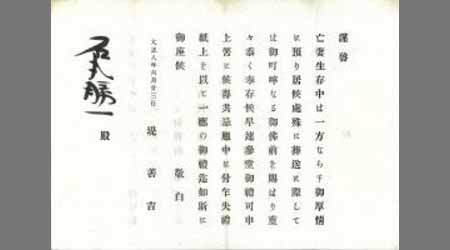 謹啓
亡妻生存中は一方ならず御厚情
に預り居候處殊に葬送に際して
は御叮嚀なる御佛前を賜はり重
々忝く奉存候早速參堂御禮可申
上筈に候得共忌服中に付乍失禮
紙上を以て一應の御禮迄如斯に
御座候 敬白
大正八年六月廿三日
堤 善吉
石丸勝一 殿